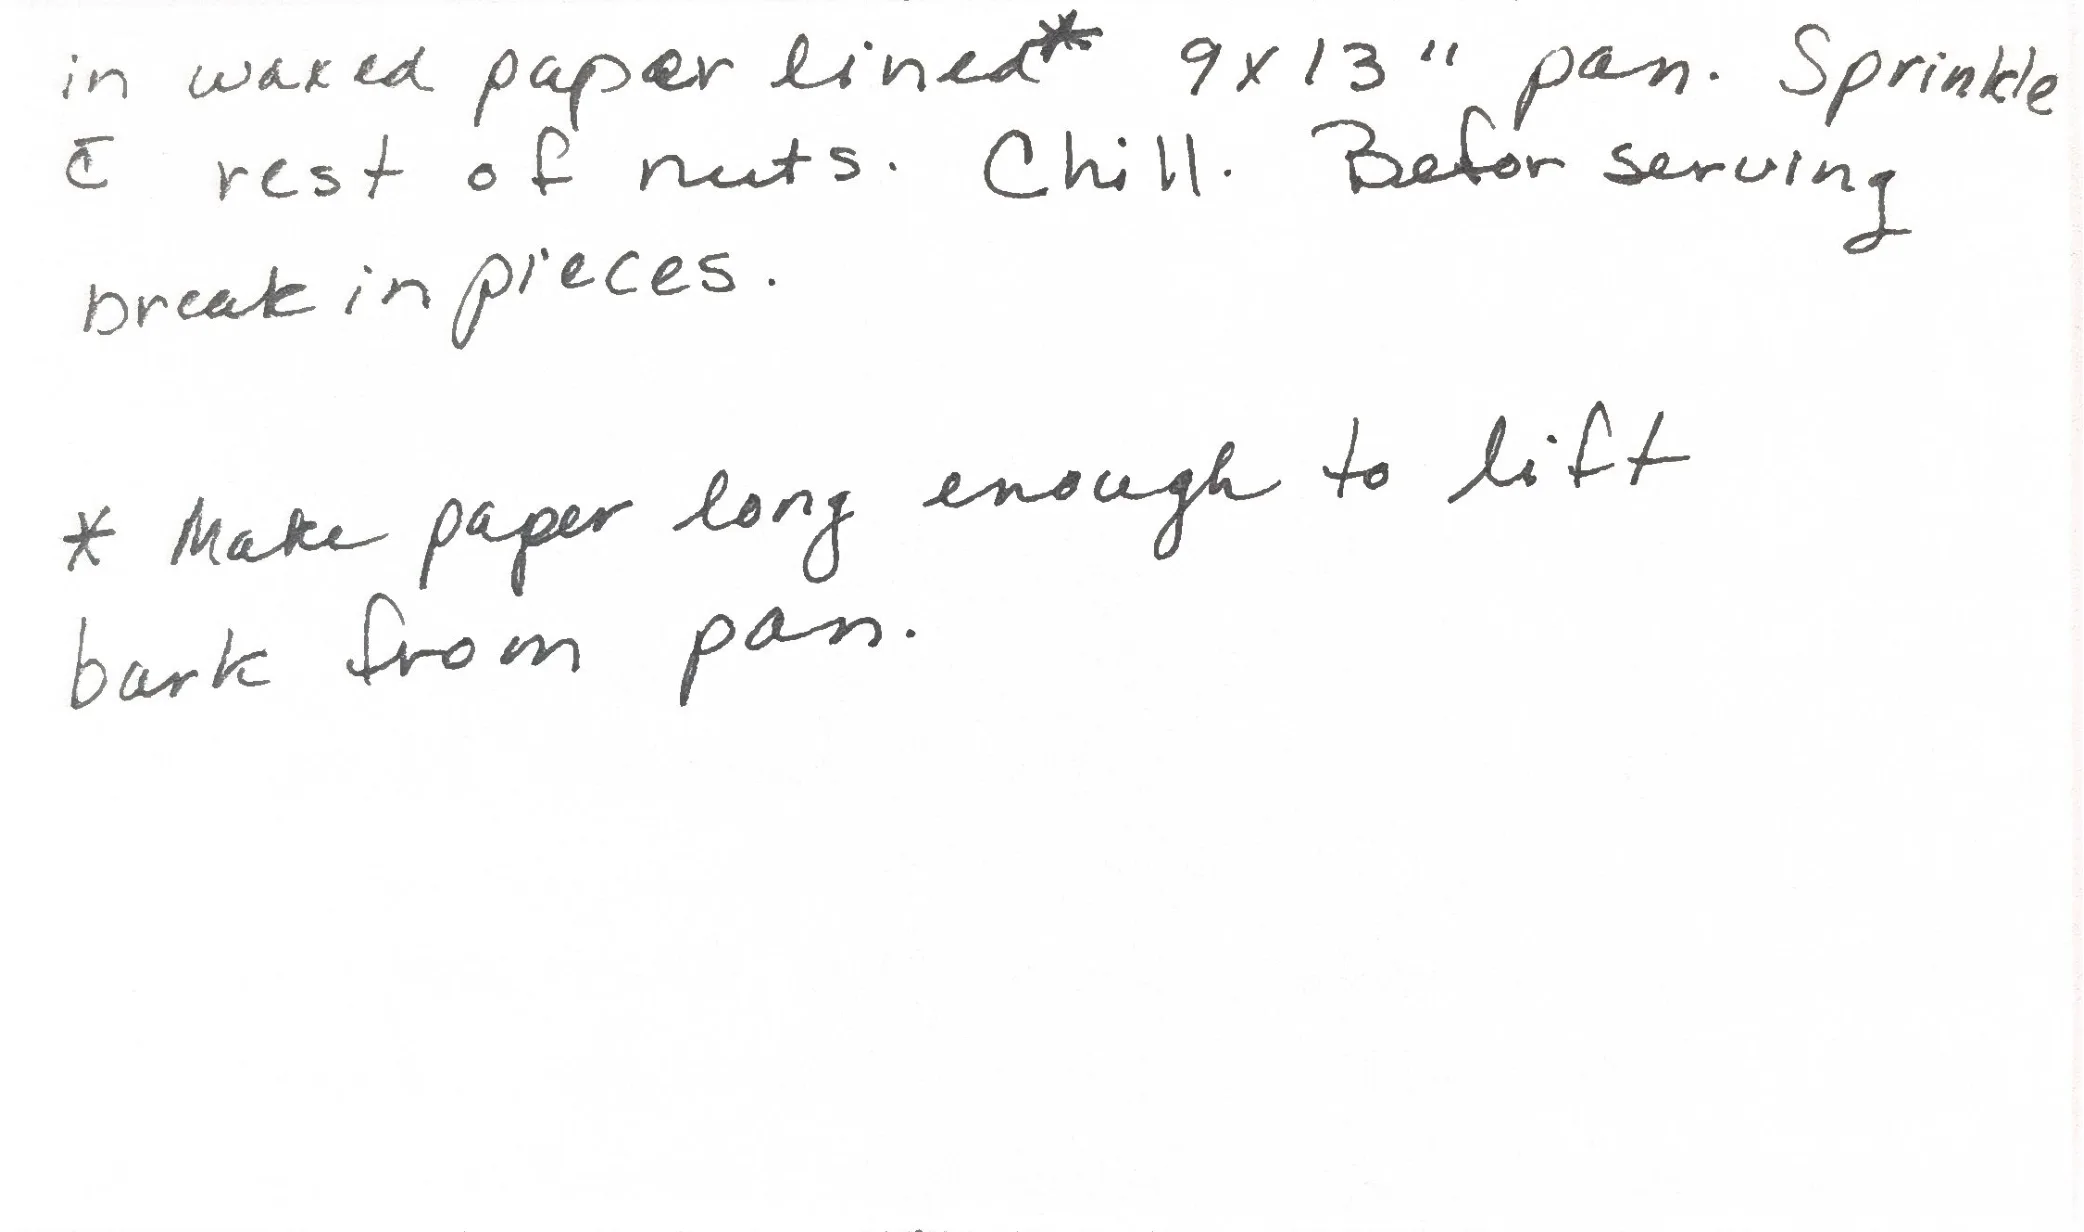 in waxed paper lined* 9x13" pan. Sprinkle
c̄ rest of nuts. Chill. Befor serving
break in pieces.
* Make paper long enough to lift
bark from pan.